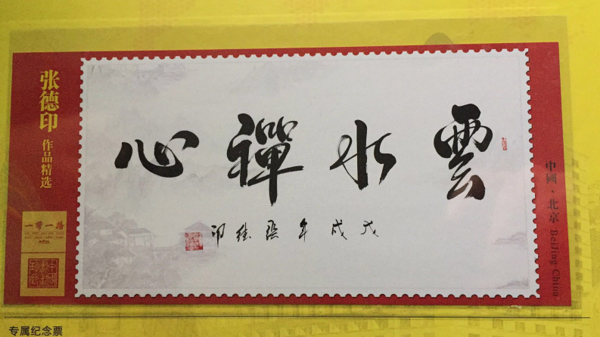 張德印
作品精选
一带一路
雲水禪心
戊戌年張德印
中國·北京 BeiJing China
专属纪念票